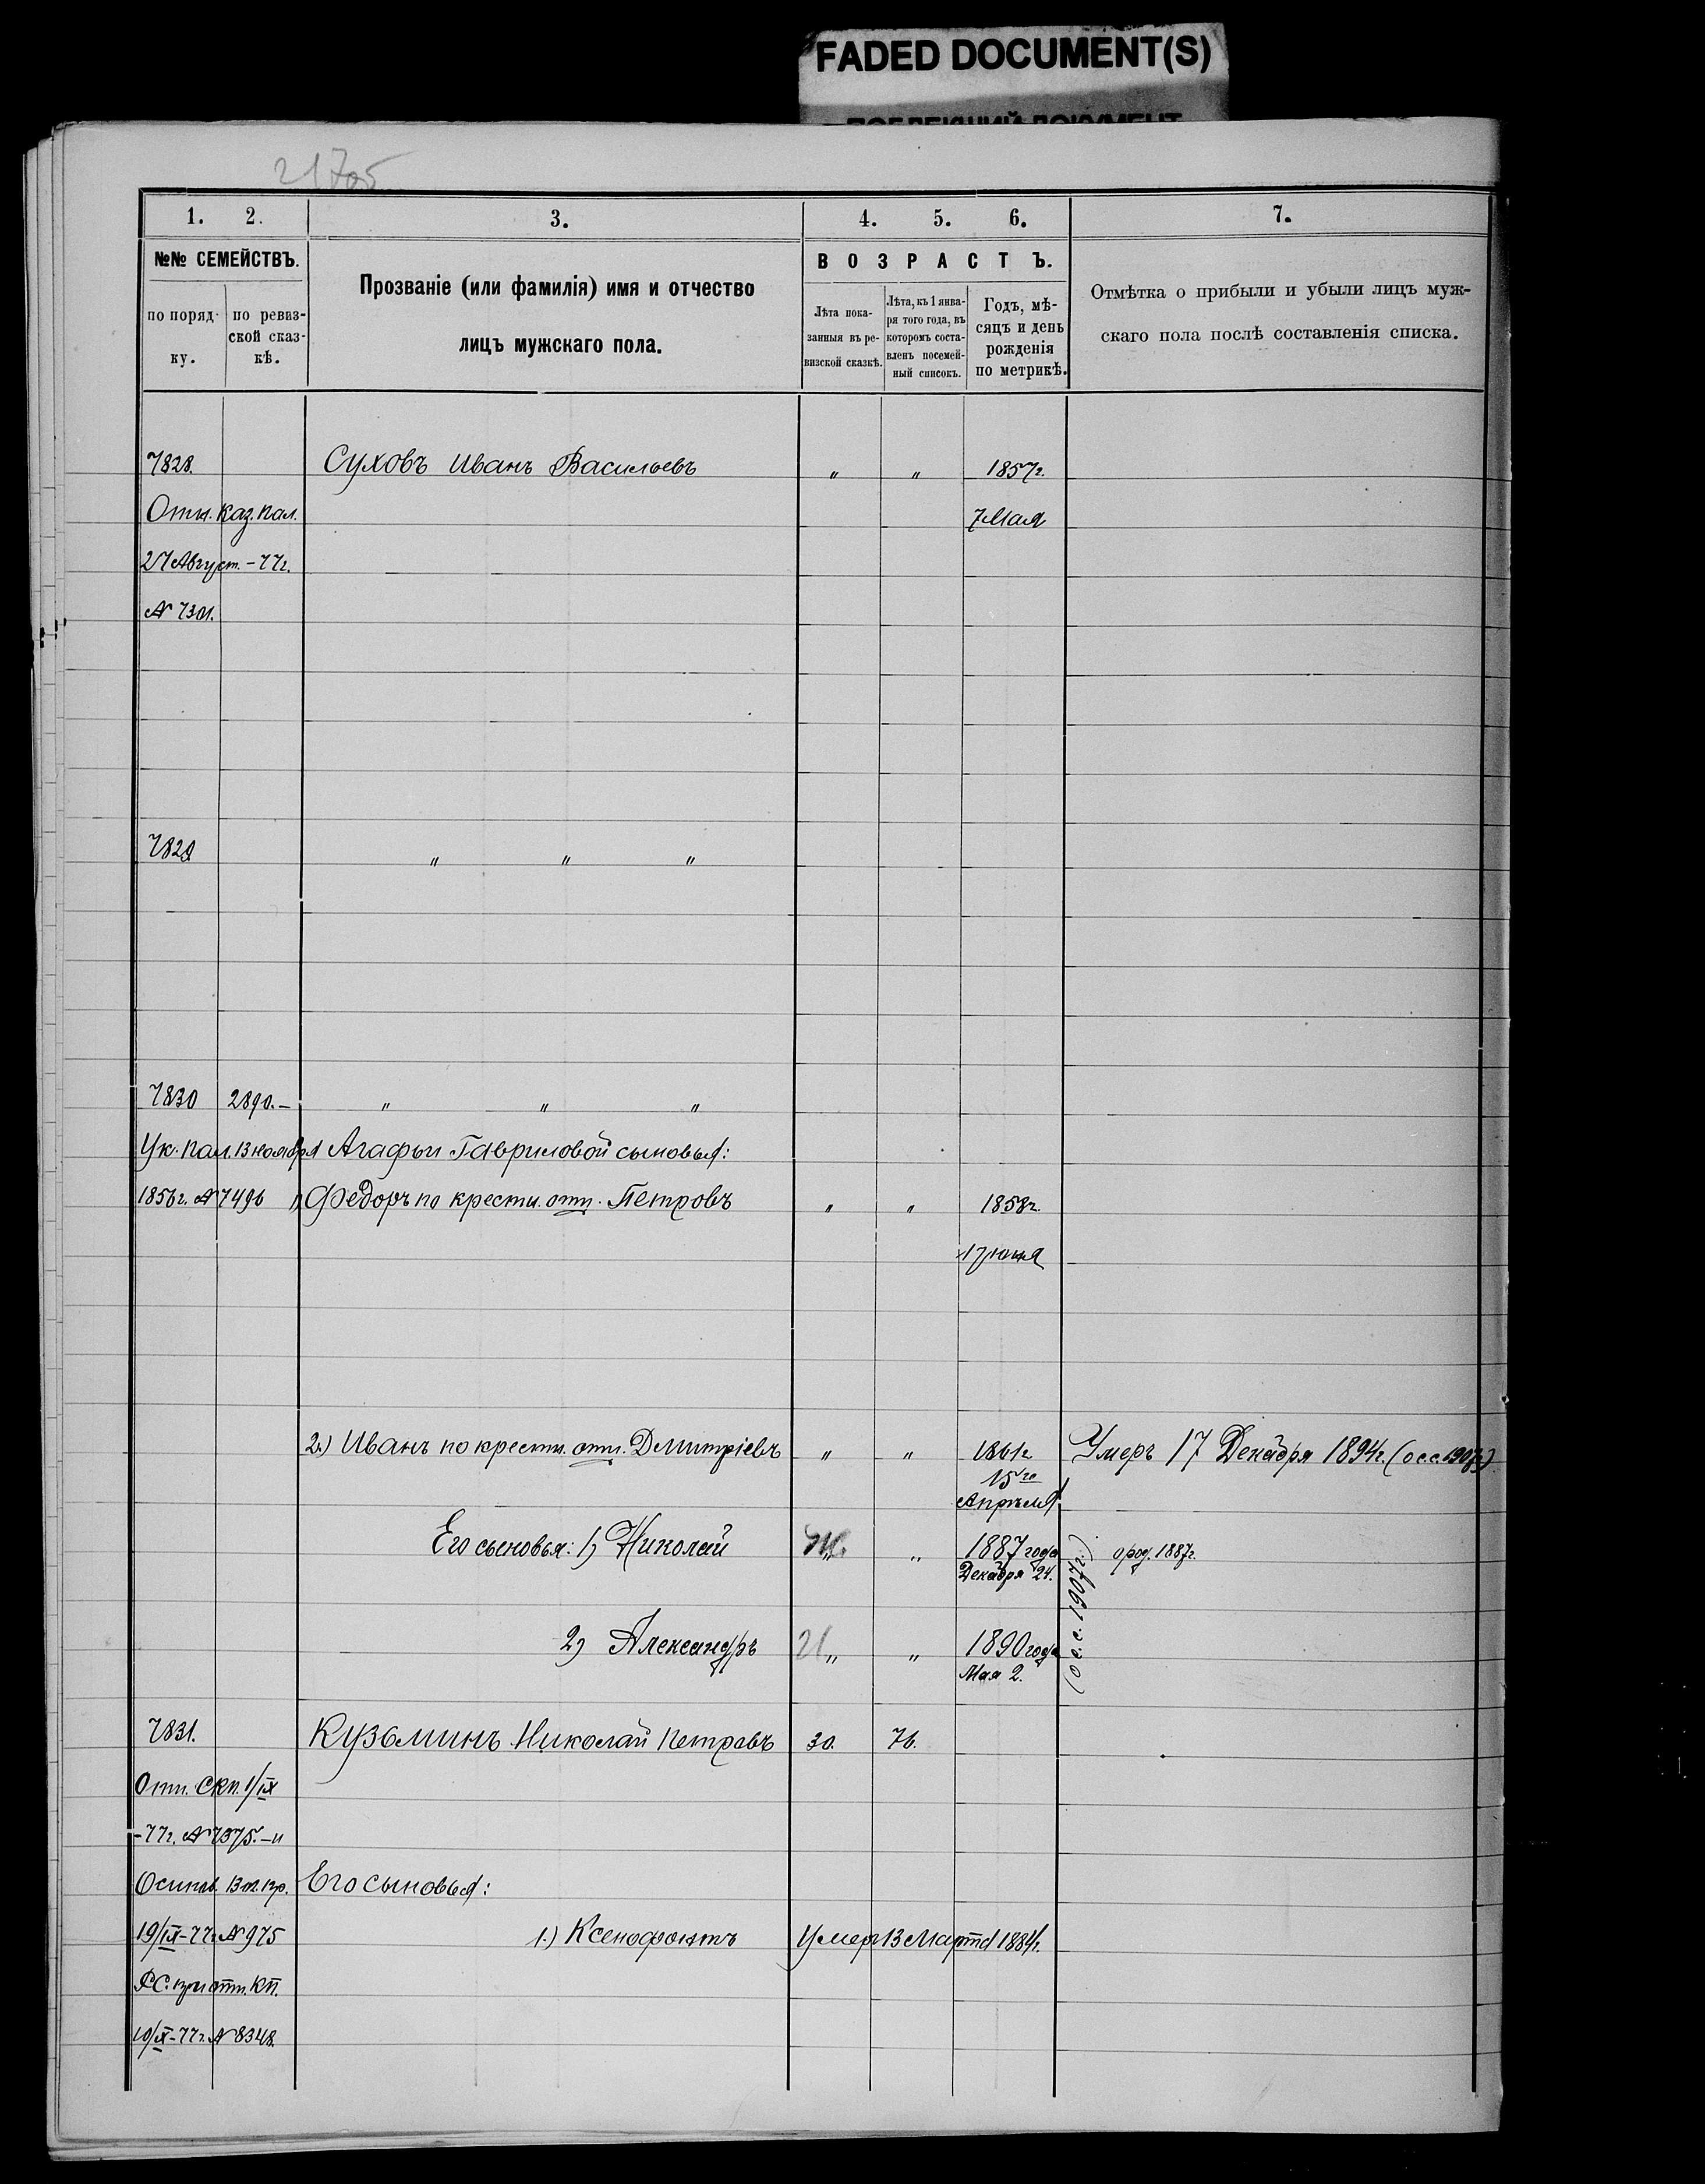 FADED DOCUMENT(S)
21705
1. 2. 3. 4. 5. 6. 7.
№№ СЕМЕЙСТВЪ.
по поряд-
ку.
по ревиз-
ской сказ-
кѣ.
Прозваніе (или фамилія) имя и отчество
лицъ мужскаго пола.
ВОЗРАСТЪ.
Лѣта пока-
занныя въ ре-
визской сказкѣ.
Лѣта, къ 1 янва-
ря того года, въ
которомъ соста-
вленъ посемей-
ный списокъ.
Годъ, мѣ-
сяцъ и день
рожденія
по метрикѣ.
Отмѣтка о прибыли и убыли лицъ муж-
скаго пола послѣ составленія списка.
7828. Суховъ Иванъ Васильевъ " " 1857г.
Отн. каз. пал. 7 Мая
27 Август. - 77г.
№ 7301.
7829 " " "
7830 2890.- " " "
Ук. пал. 13 ноября Агафьи Гавриловой сыновья:
1856г. № 7496 1) Федоръ по крестн. отц. Петровъ " " 1858г.
17 юня
2.) Иванъ по крестн. отц. Дмитріевъ " " 1861г. Умеръ 17 Декабря 1894г. (о с.с. 1907г.)
15го
Апрѣля
Его сыновья: 1) Николай " " 1887 года о род. 1887г.
Декабря 24.
2) Александръ 21 " " 1890 года
Мая 2.
(о с.с. 1907г.)
7831. Кузьминъ Николай Петровъ 30. 76.
Отн. СКП. 1/IX
-77г. № 7375.-и
Осипов. Вол. пр. Его сыновья:
19/IX-77г. № 975 1.) Ксенофонтъ Умер 13 Марта 1884г.
РС. при отн. КП.
10/X-77г. № 8348.